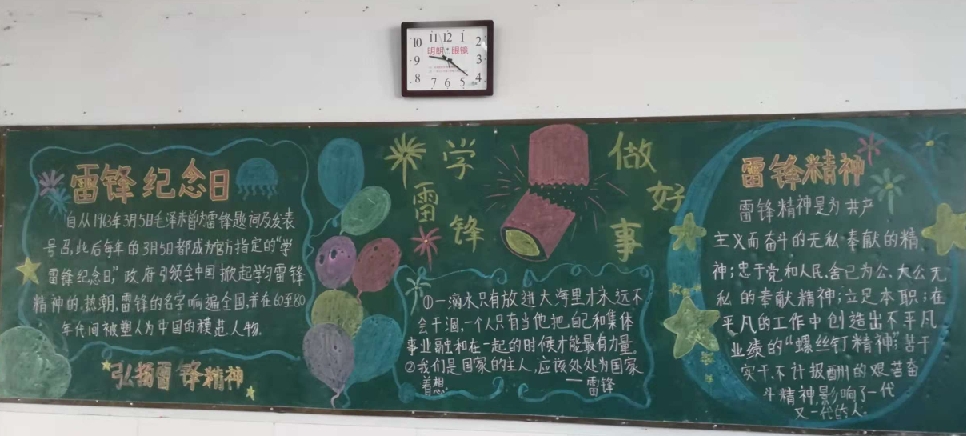 10 11 12 1 2
9 3
8 7 6 5 4
雷锋纪念日
自从1963年3月5日毛泽东曾为雷锋题词及发表
号召,此后每年的3月5日都成为官方指定的“学
雷锋纪念日”,政府引领全国掀起学习雷锋
精神的热潮.雷锋的名字响遍全国,并在60至80
年代间被塑人为中国的模范人物.
弘扬雷锋精神
学
雷
锋
做
好
事
①一滴水只有放进大海里才永远不
会干涸,一个人只有当他把自己和集体
事业融和在一起的时候才能最有力量.
②我们是国家的主人,应该处处为国家
着想. ——雷锋
雷锋精神
雷锋精神是为共产
主义而奋斗的无私奉献的精
神;忠于党和人民,舍已为公、大公无
私的奉献精神;立足本职;在
平凡的工作中创造出不平凡
业绩的“螺丝钉精神”;苦干
实干,不计报酬的艰苦奋
斗精神,影响了一代
又一代人.